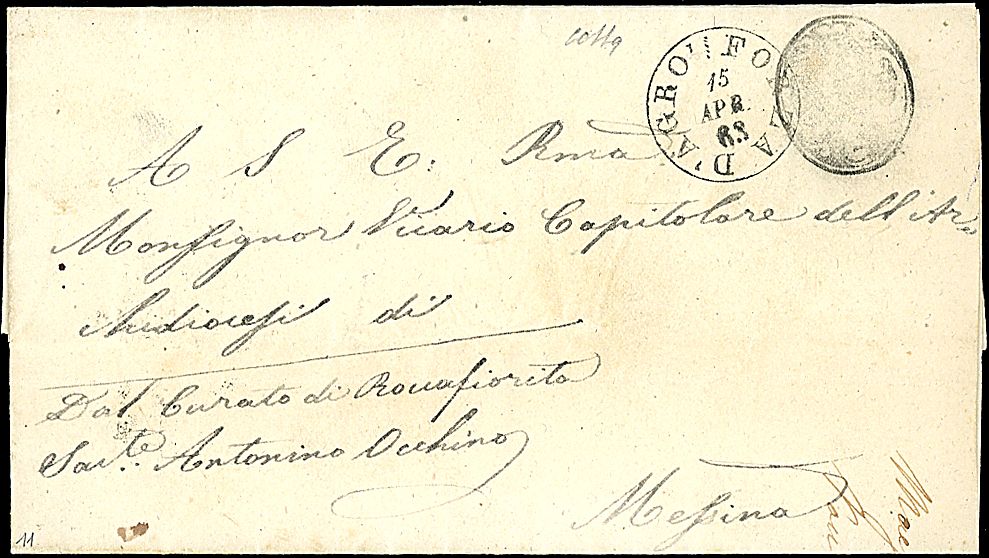 colla
FORZA D'AGRO'
15
APR.
63
A S E: Rma
Monsignor Vicario Capitolare dell'Ar=
chidiocesi di
Dal Curato di Roccafiorita
Sacte. Antonino Occhino
Messina
11